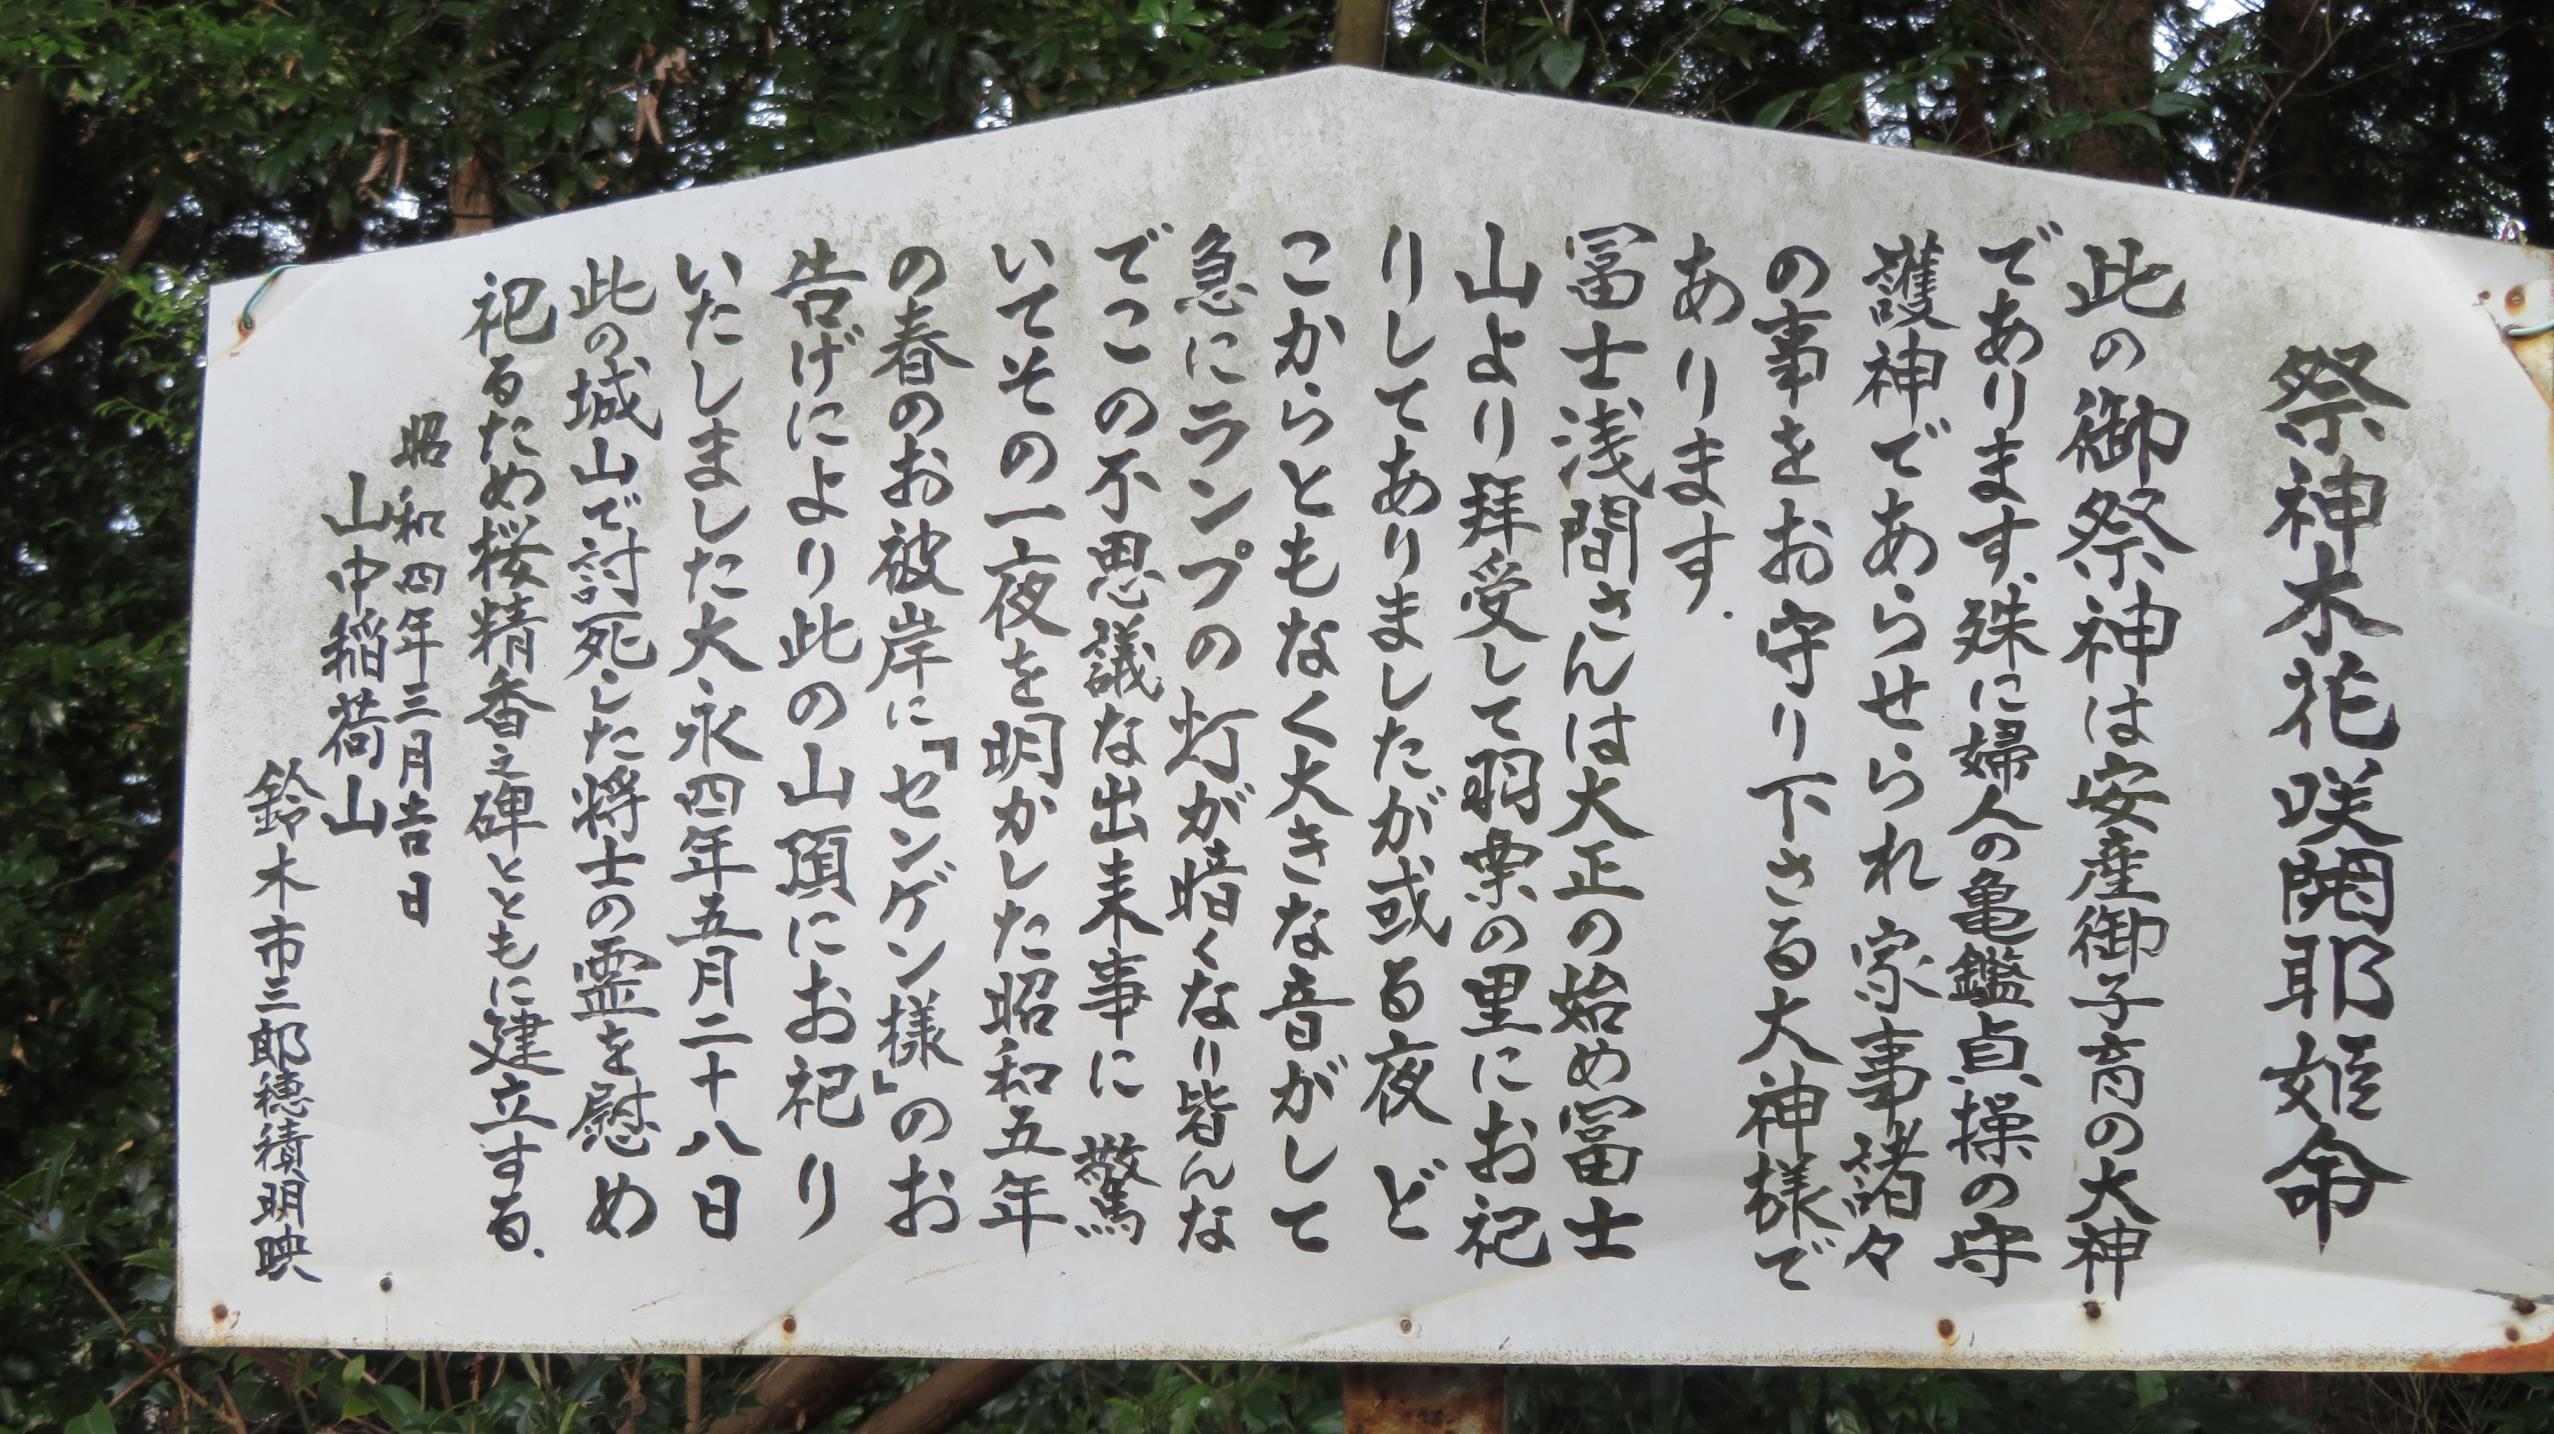 祭神木花咲開耶姫命
此の御祭神は安産御子育の大神
であります。殊に婦人の亀鑑貞操の守
護神であらせられ家事諸々
の事をお守り下さる大神様で
あります.
冨士浅間さんは大正の始め冨士
山より拝受して羽栗の里にお祀
りしてありましたが或る夜ど
こからともなく大きな音がして
急にランプの灯が暗くなり皆んな
でこの不思議な出来事に驚
いてその一夜を明かした昭和五年
の春のお彼岸に『センゲン様』のお
告げにより此の山頂にお祀り
いたしました大永四年五月二十八日
此の城山で討死した将士の霊を慰め
祀るため桜精香之碑とともに建立する.
昭和四年三月吉日
山中稲荷山
鈴木市三郎穂積明映